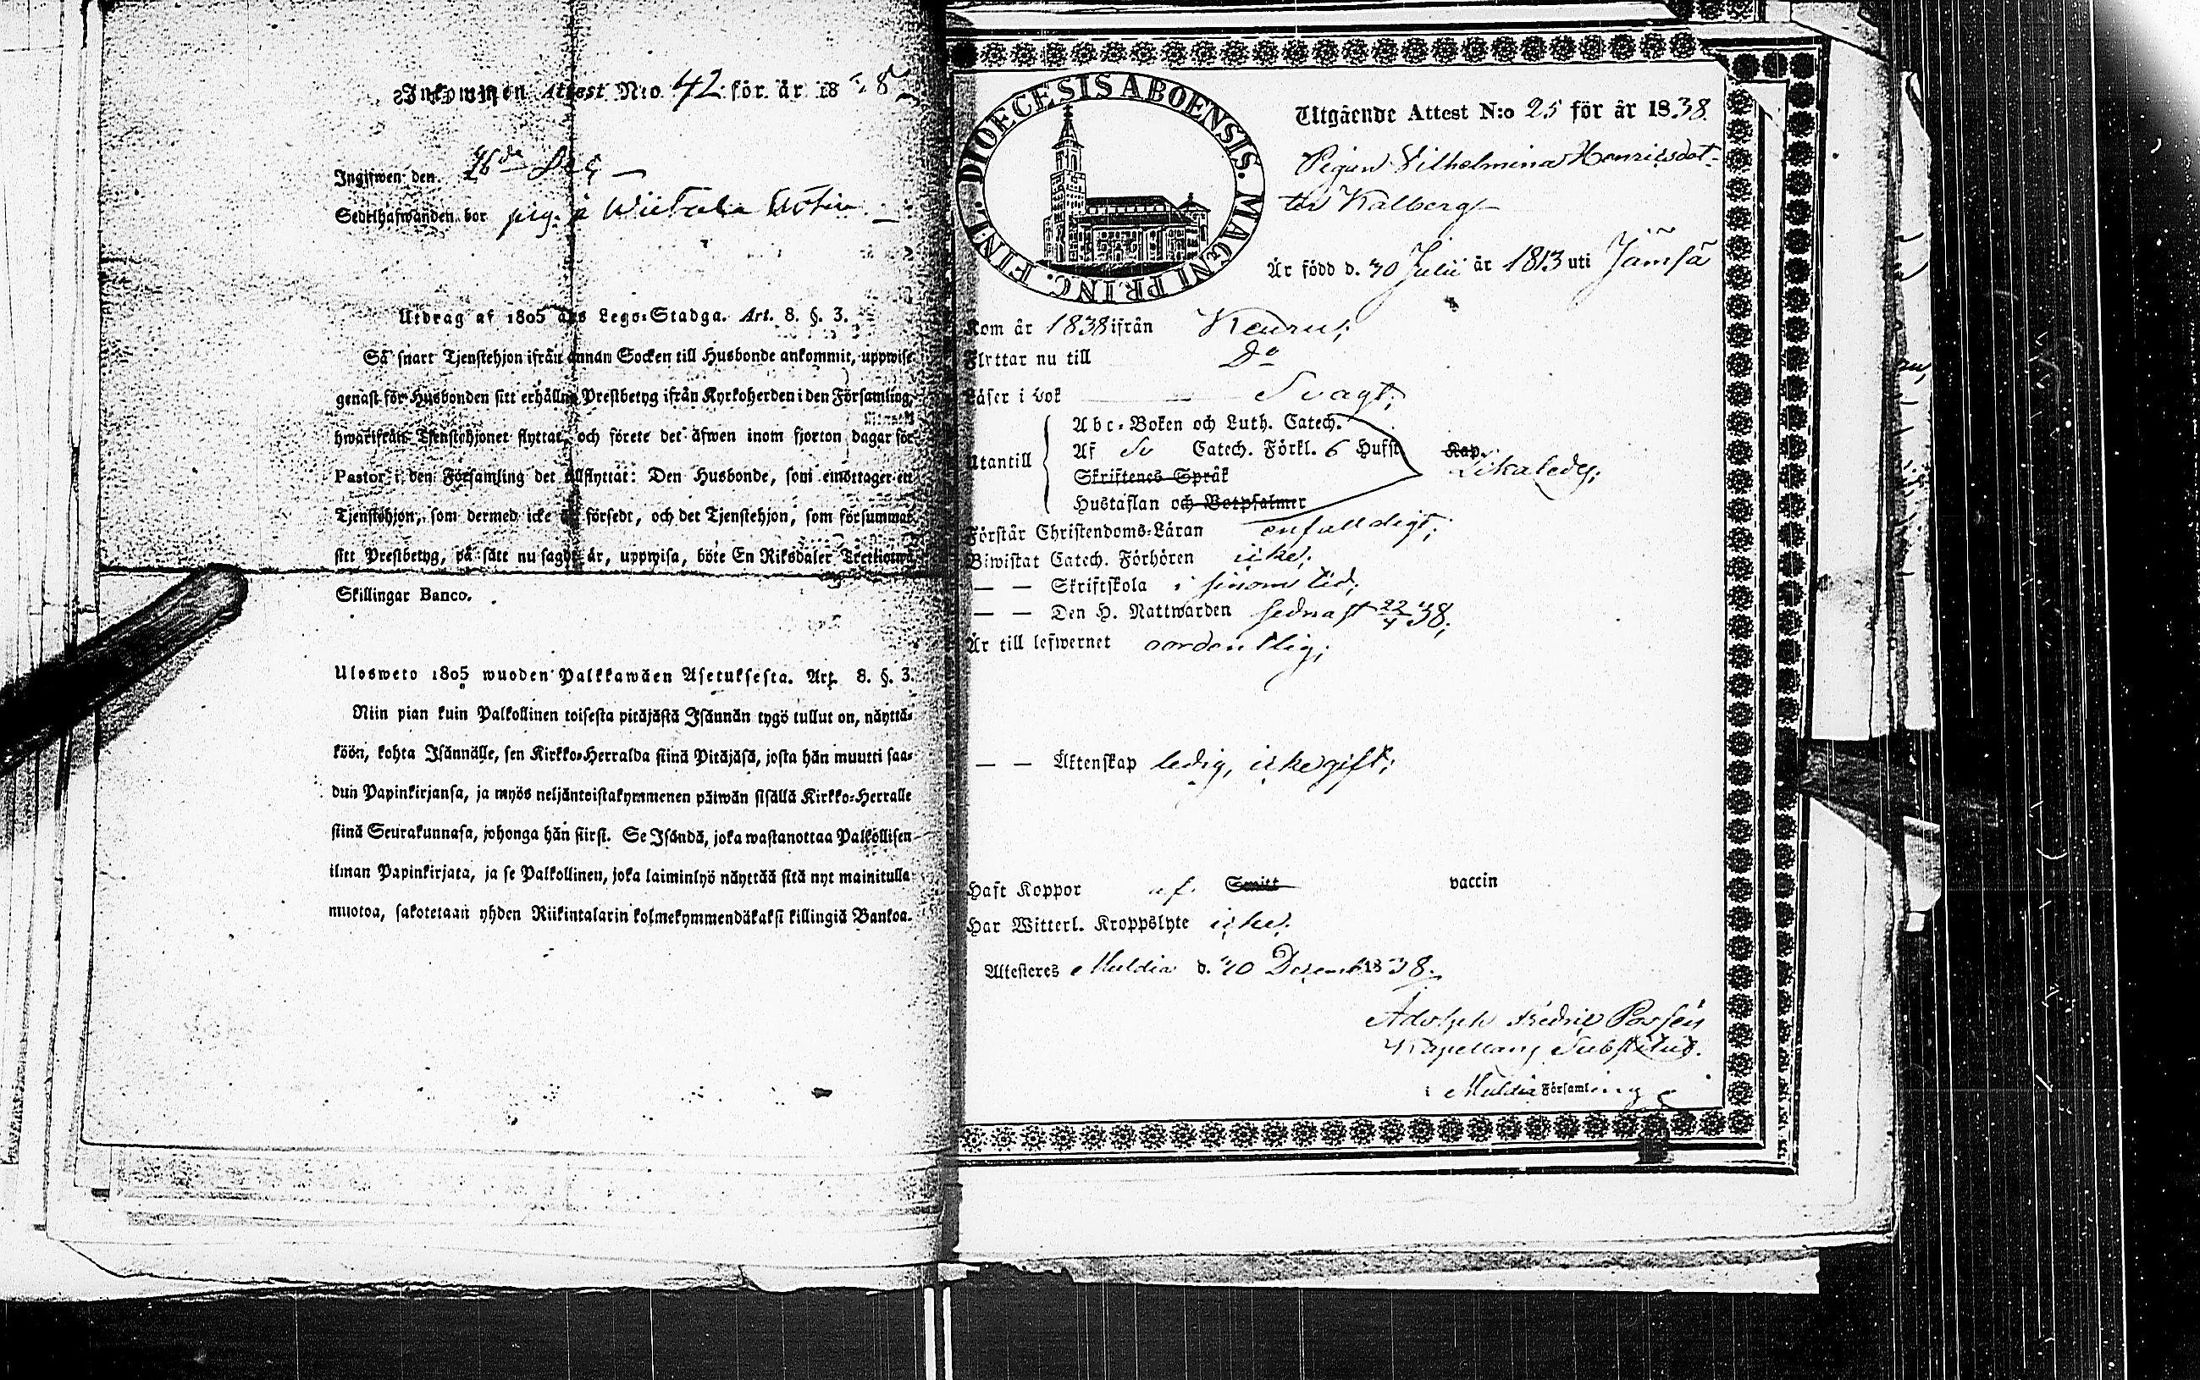 Inkommen Attest N:o 42 för år 18 8
Ingifwen den 16de
Sedelhafwanden bor pig. å
Utdrag af 1805 års Lego-Stadga. Art. 8. §. 3.
Så snart Tjenstehjon ifrån annan Socken till Husbonde ankommit, uppwise
genast för Husbonden sitt erhållna Prestbetyg ifrån Kyrkoherden i den Församling,
hwarifrån Tjenstehjonet flyttat, och förete det äfwen inom fjorton dagar för
Pastor i den Församling det tillflyttat: Den Husbonde, som emottager ett
Tjenstehjon, som dermed icke är försedt, och det Tjenstehjon, som försummar
sitt Prestbetyg, på sätt nu sagdt är, uppwisa, böte En Riksdaler Trettiotwå
Skillingar Banco.
Ulosweto 1805 wuoden Palkkawäen Asetuksesta. Art. 8. §. 3.
Niin pian kuin Palkollinen toisesta pitäjästä Isännän tygö tullut on, näyttä-
köön, kohta Isännälle, sen Kirkko-Herralda siinä Pitäjäsä, josta hän muutti saa-
dun Papinkirjansa, ja myös neljäntoistakymmenen päiwän sisällä Kirkko-Herralle
siinä Seurakunnasa, johonga hän siirst. Se Isändä, joka wastanottaa Palkollisen
ilman Papinkirjata, ja se Palkollinen, joka laiminlyö näyttää sitä nyt mainitulla
muotoa, sakotetaan yhden Riikintalarin kolmekymmendäkaksi killingiä Bankoa.
DIOECESIS ABOENSIS. MAGNI PRINC. FINL.
Utgående Attest N:o 25 för år 1838.
Pigan Vilhelmina Henricsdot-
ter Kalberg
Är född d. 30 Julii år 1813 uti Jämsä
Kom år 1838 ifrån Keuru;
Flyttar nu till Do
Läser i bok Svagt;
Utantill
Abc-Boken och Luth. Catech.
Af Sv Catech. Förkl. 6 Hufst Kap.
Skriftenes Språk
Hustaflan och Botpsalmer
Likaledes;
Förstår Christendoms-Läran enfaldigt;
Biwistat Catech. Förhören icke;
— — Skriftskola i sinom tid;
— — Den H. Nattwarden sednast 22/4 38;
Är till lefwernet oordentlig;
— — Äktenskap ledig, icke gift;
Haft Koppor af Smitt vaccin
Har Witterl. Kroppslyte icke;
Attesteres Muldia d. 30 Decemb 1838.
Adolph Fredric Passén
Kapellans Substitut.
i Muldia Församling